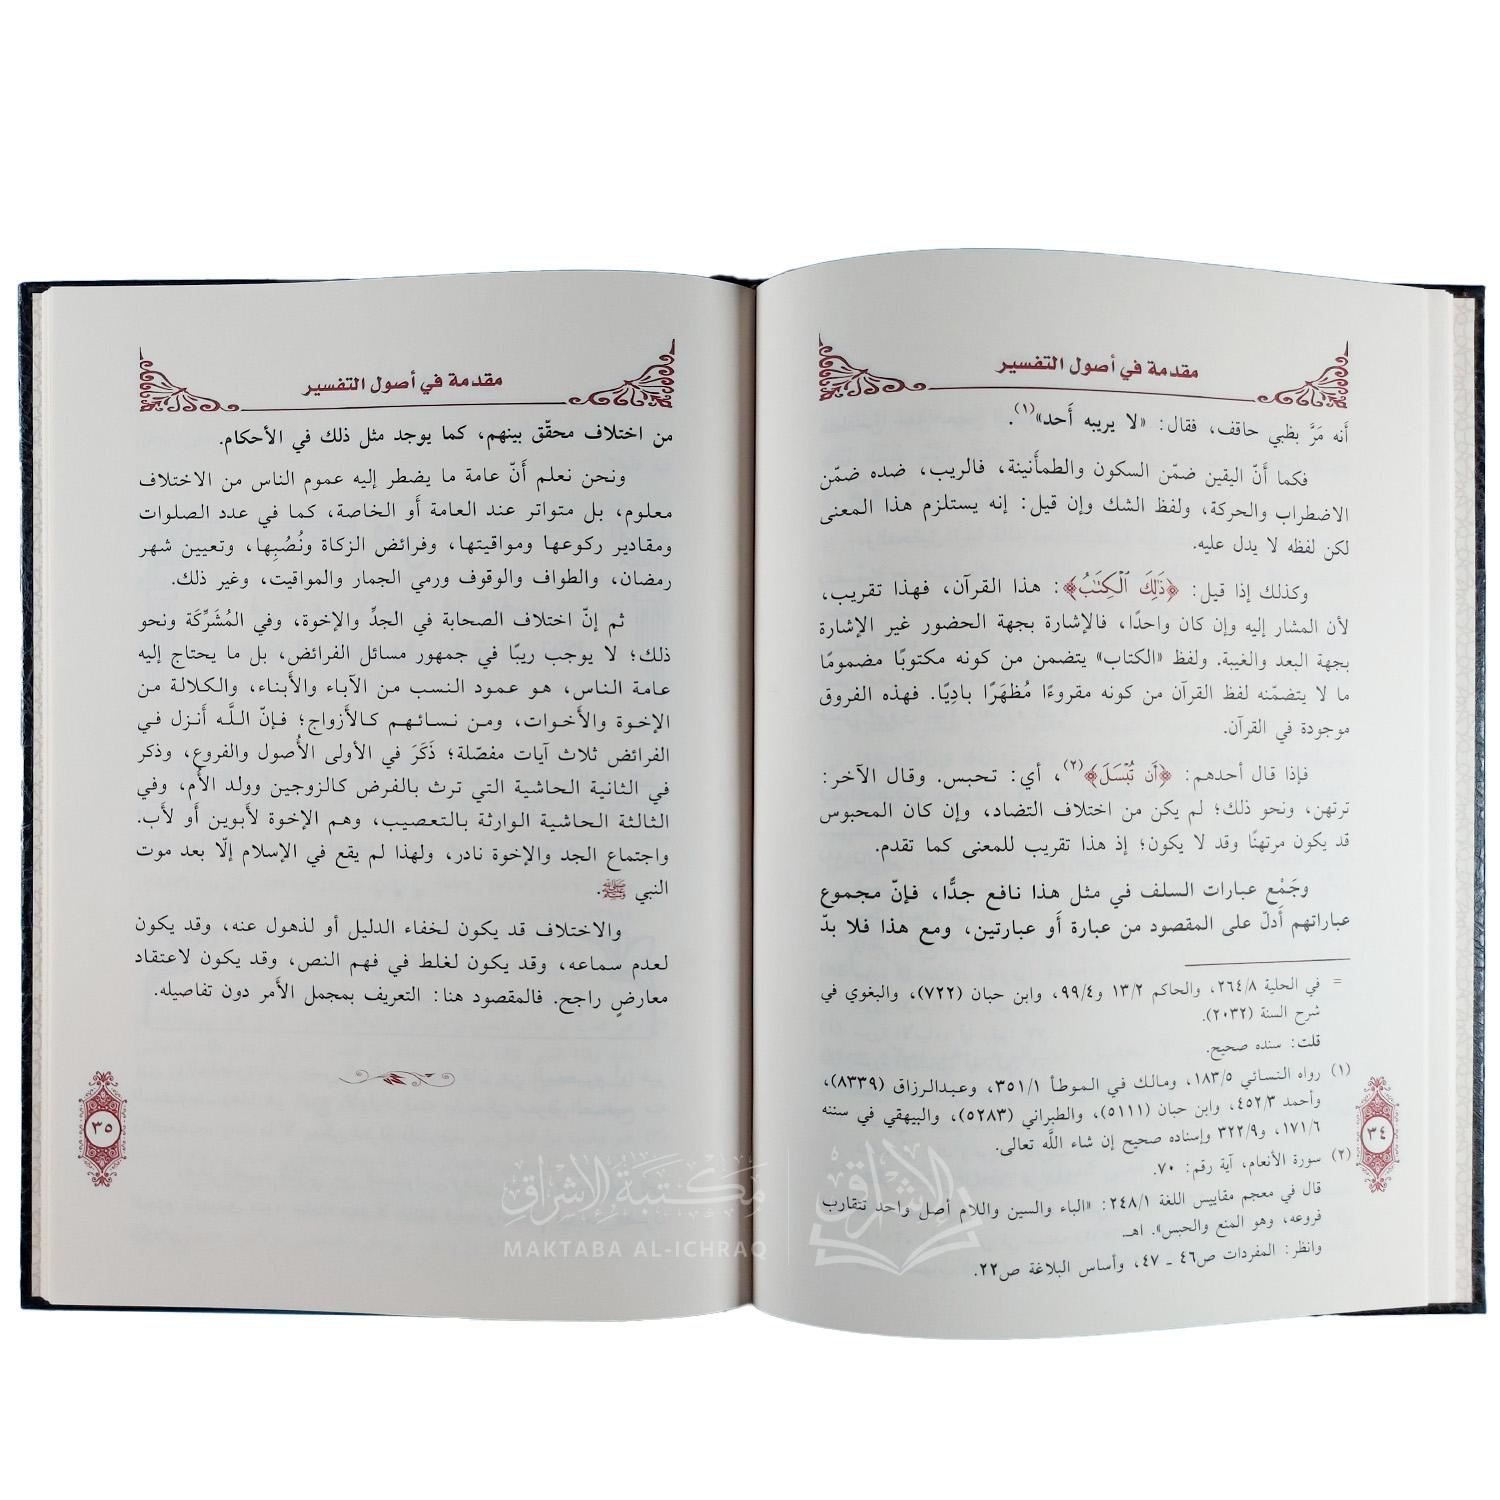 مقدمة في أصول التفسير
أَنه مَرَّ بظبي حاقف، فقال: «لا يريبه أَحد»(١).
فكما أَنّ اليقين ضمّن السكون والطمأَنينة، فالريب، ضده ضمّن
الاضطراب والحركة، ولفظ الشك وإن قيل: إنه يستلزم هذا المعنى
لكن لفظه لا يدل عليه.
وكذلك إذا قيل: ﴿ذَٰلِكَ ٱلۡكِتَٰبُ﴾: هذا القرآن، فهذا تقريب،
لأن المشار إليه وإن كان واحدًا، فالإشارة بجهة الحضور غير الإشارة
بجهة البعد والغيبة. ولفظ «الكتاب» يتضمن من كونه مكتوبًا مضمومًا
ما لا يتضمّنه لفظ القرآن من كونه مقروءًا مُظهَرًا بادِيًا. فهذه الفروق
موجودة في القرآن.
فإذا قال أحدهم: ﴿أَن تُبۡسَلَ﴾(٢)، أي: تحبس. وقال الآخر:
ترتهن، ونحو ذلك؛ لم يكن من اختلاف التضاد، وإن كان المحبوس
قد يكون مرتهنًا وقد لا يكون؛ إذ هذا تقريب للمعنى كما تقدم.
وجَمْع عبارات السلف في مثل هذا نافع جدًّا، فإنّ مجموع
عباراتهم أَدلّ على المقصود من عبارة أَو عبارتين، ومع هذا فلا بدّ
= في الحلية ٢٦٤/٨، والحاكم ١٣/٢ و٩٩/٤، وابن حبان (٧٢٢)، والبغوي في
شرح السنة (٢٠٣٢).
قلت: سنده صحيح.
(١) رواه النسائي ١٨٣/٥، ومالك في الموطأ ٣٥١/١، وعبدالرزاق (٨٣٣٩)،
وأحمد ٤٥٢/٣، وابن حبان (٥١١١)، والطبراني (٥٢٨٣)، والبيهقي في سننه
١٧١/٦، و٣٢٢/٩ وإسناده صحيح إن شاء اللَّه تعالى.
(٢) سورة الأنعام، آية رقم: ٧٠.
قال في معجم مقاييس اللغة ٢٤٨/١: «الباء والسين واللام أصل واحد تتقارب
فروعه، وهو المنع والحبس». اهـ.
وانظر: المفردات ص٤٦ ـ ٤٧، وأساس البلاغة ص٢٢.
٣٤
مقدمة في أصول التفسير
من اختلاف محقّق بينهم، كما يوجد مثل ذلك في الأحكام.
ونحن نعلم أَنّ عامة ما يضطر إليه عموم الناس من الاختلاف
معلوم، بل متواتر عند العامة أَو الخاصة، كما في عدد الصلوات
ومقادير ركوعها ومواقيتها، وفرائض الزكاة ونُصُبِها، وتعيين شهر
رمضان، والطواف والوقوف ورمي الجمار والمواقيت، وغير ذلك.
ثم إنّ اختلاف الصحابة في الجدِّ والإخوة، وفي المُشَرِّكَة ونحو
ذلك؛ لا يوجب ريبًا في جمهور مسائل الفرائض، بل ما يحتاج إليه
عامة الناس، هو عمود النسب من الآباء والأَبناء، والكلالة من
الإخوة والأَخوات، ومن نسائهم كالأَزواج؛ فإنّ اللَّه أَنزل في
الفرائض ثلاث آيات مفصّلة؛ ذَكَرَ في الأولى الأُصول والفروع، وذكر
في الثانية الحاشية التي ترث بالفرض كالزوجين وولد الأُم، وفي
الثالثة الحاشية الوارثة بالتعصيب، وهم الإخوة لأَبوين أَو لأَب.
واجتماع الجد والإخوة نادر، ولهذا لم يقع في الإسلام إلّا بعد موت
النبي ﷺ.
والاختلاف قد يكون لخفاء الدليل أَو لذهول عنه، وقد يكون
لعدم سماعه، وقد يكون لغلط في فهم النص، وقد يكون لاعتقاد
معارضٍ راجح. فالمقصود هنا: التعريف بمجمل الأَمر دون تفاصيله.
٣٥
مكتبة الإشراق
MAKTABA AL-ICHRAQ
الإشراق